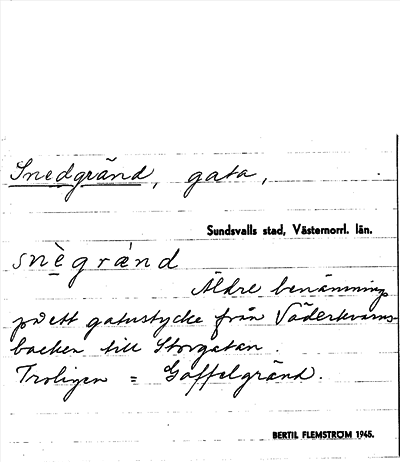 Snedgränd, gata,
Sundsvalls stad, Västernorrl. län.
snè gränd
Äldre benämning
på ett gatustycke från Väderkvarns-
backen till Storgatan.
Troligen = Gaffelgränd.
BERTIL FLEMSTRÖM 1945.